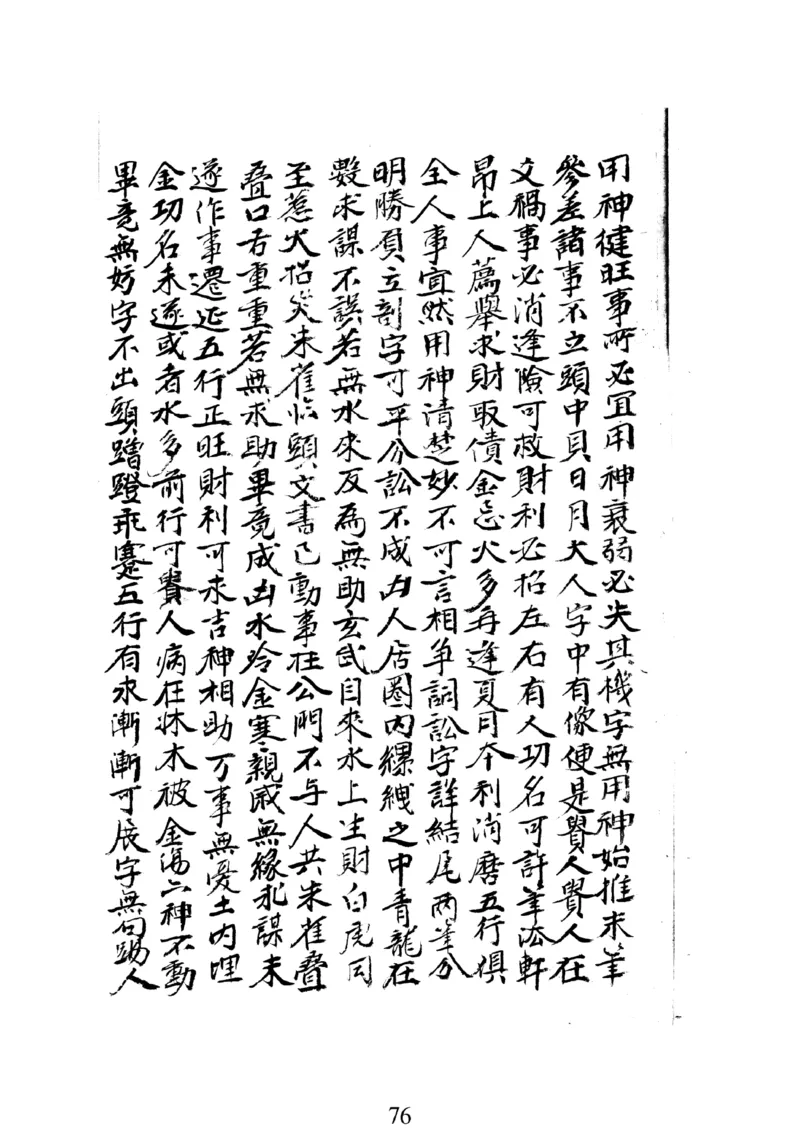 用神健旺事所必宜用神衰弱必失其機字無用神始推末筆
參差諸事不立頭中貝日月大人字中有像便是貴人貴人在
文禍事必消逢險可救財利必招左右有人功名可許筆法軒
昂上人薦舉求財取債金忌火多再逢夏月本利消磨五行俱
全人事宜然用神清楚妙不可言相争詞訟字詳結尾兩筆分
明勝負立剖字可平分訟不成凶人居圈內縲絏之中青龍在
數求謀不誤若無水來反為無助玄武自來水上生財白虎同
至惹火招災朱雀临頭文書已動事在公門不与人共朱雀疊
疊口舌重重若無求助畢竟成凶水冷金寒親戚無緣永謀未
遂作事遷延五行正旺財利可求吉神相助万事無憂土内埋
金功名未遂或者水多前行可貴人病在牀木被金傷六神不動
畢竟無妨字不出頭蹭蹬乖蹇五行有求漸漸可展字無勾踢人
76